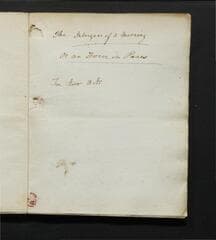 The Intrigues of a Morning
Or an Hour in Paris
In Two Acts